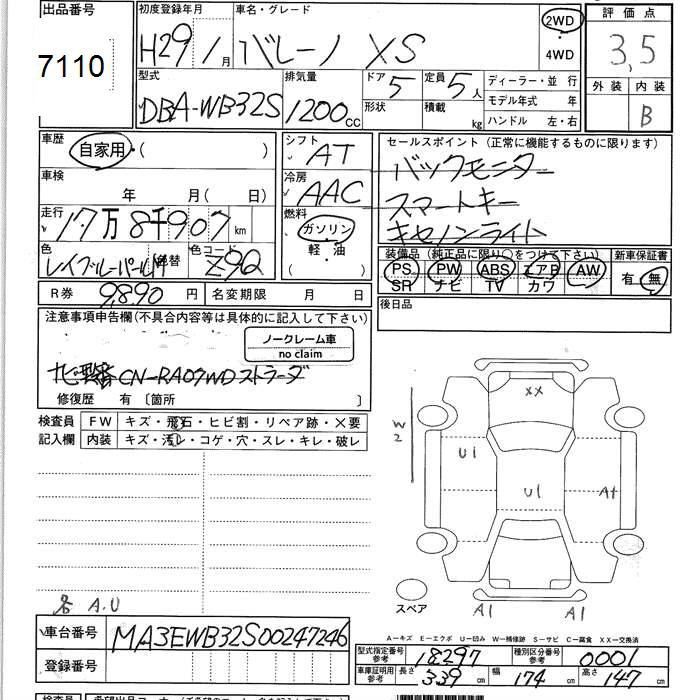 出品番号
7110
初度登録年月
H29/月
車名・グレード
バレーノ XS
2WD
・
4WD
評価点
3.5
外装 内装
B
型式
DBA-WB32S
排気量
1200cc
ドア 5
形状
定員 5人
積載 kg
ディーラー・並行
モデル年式 年
ハンドル 左・右
車歴
自家用・( )
車検
年 月( 日)
走行
17万8千907km
色
替
色コード
Z9Q
R券 9,890円
名変期限 月 日
シフト
AT
冷房
AAC
燃料
ガソリン
軽・油
( )
セールスポイント(正常に機能するものに限ります)
バックモニター
スマートキー
キセノンライト
装備品(純正品に限り○をつけて下さい)
PS PW ABS エアB AW
SR ナビ TV カワ
新車保証書
有・無
後日品
注意事項申告欄(不具合内容等は具体的に記入して下さい)
ノークレーム車
no claim
CN-RA07WDストラーダ
修復歴 有〔箇所 〕
検査員
記入欄
FW キズ・飛石・ヒビ割・リペア跡・×要
内装 キズ・汚レ・コゲ・穴・スレ・キレ・破レ
XX
W2
U1
U1
A1
A1
A1
スペア
A.U
車台番号 MA3EWB32S00247246
登録番号
A―キズ E―エクボ U―凹み W―補修跡 S―サビ C―腐食 XX―交換済
型式指定番号
参考
18297
種別区分番号
参考
0001
車庫証明用
参考
長さ 339cm 幅 174cm 高さ 147cm
検査員